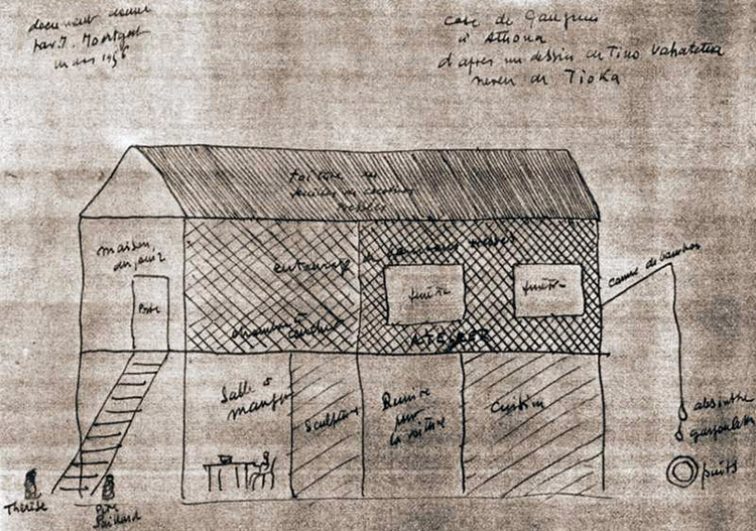 document donné
par J. 
mars 19
case de Gauguin
à Atuona
d'après un dessin de Tino Vahatetua
neveu de Tioka
Toiture en
feuilles de cocotiers
tressées
maison
du jouir
entourage de bambous tressés
fenêtre
fenêtre
canne de bambou
Porte
chambre à
coucher
ATELIER
Salle à
manger
Sculpture
Remise
pour
la voiture
Cuisine
absinthe
gargoulette
puits
Thérèse
Père
Paillard